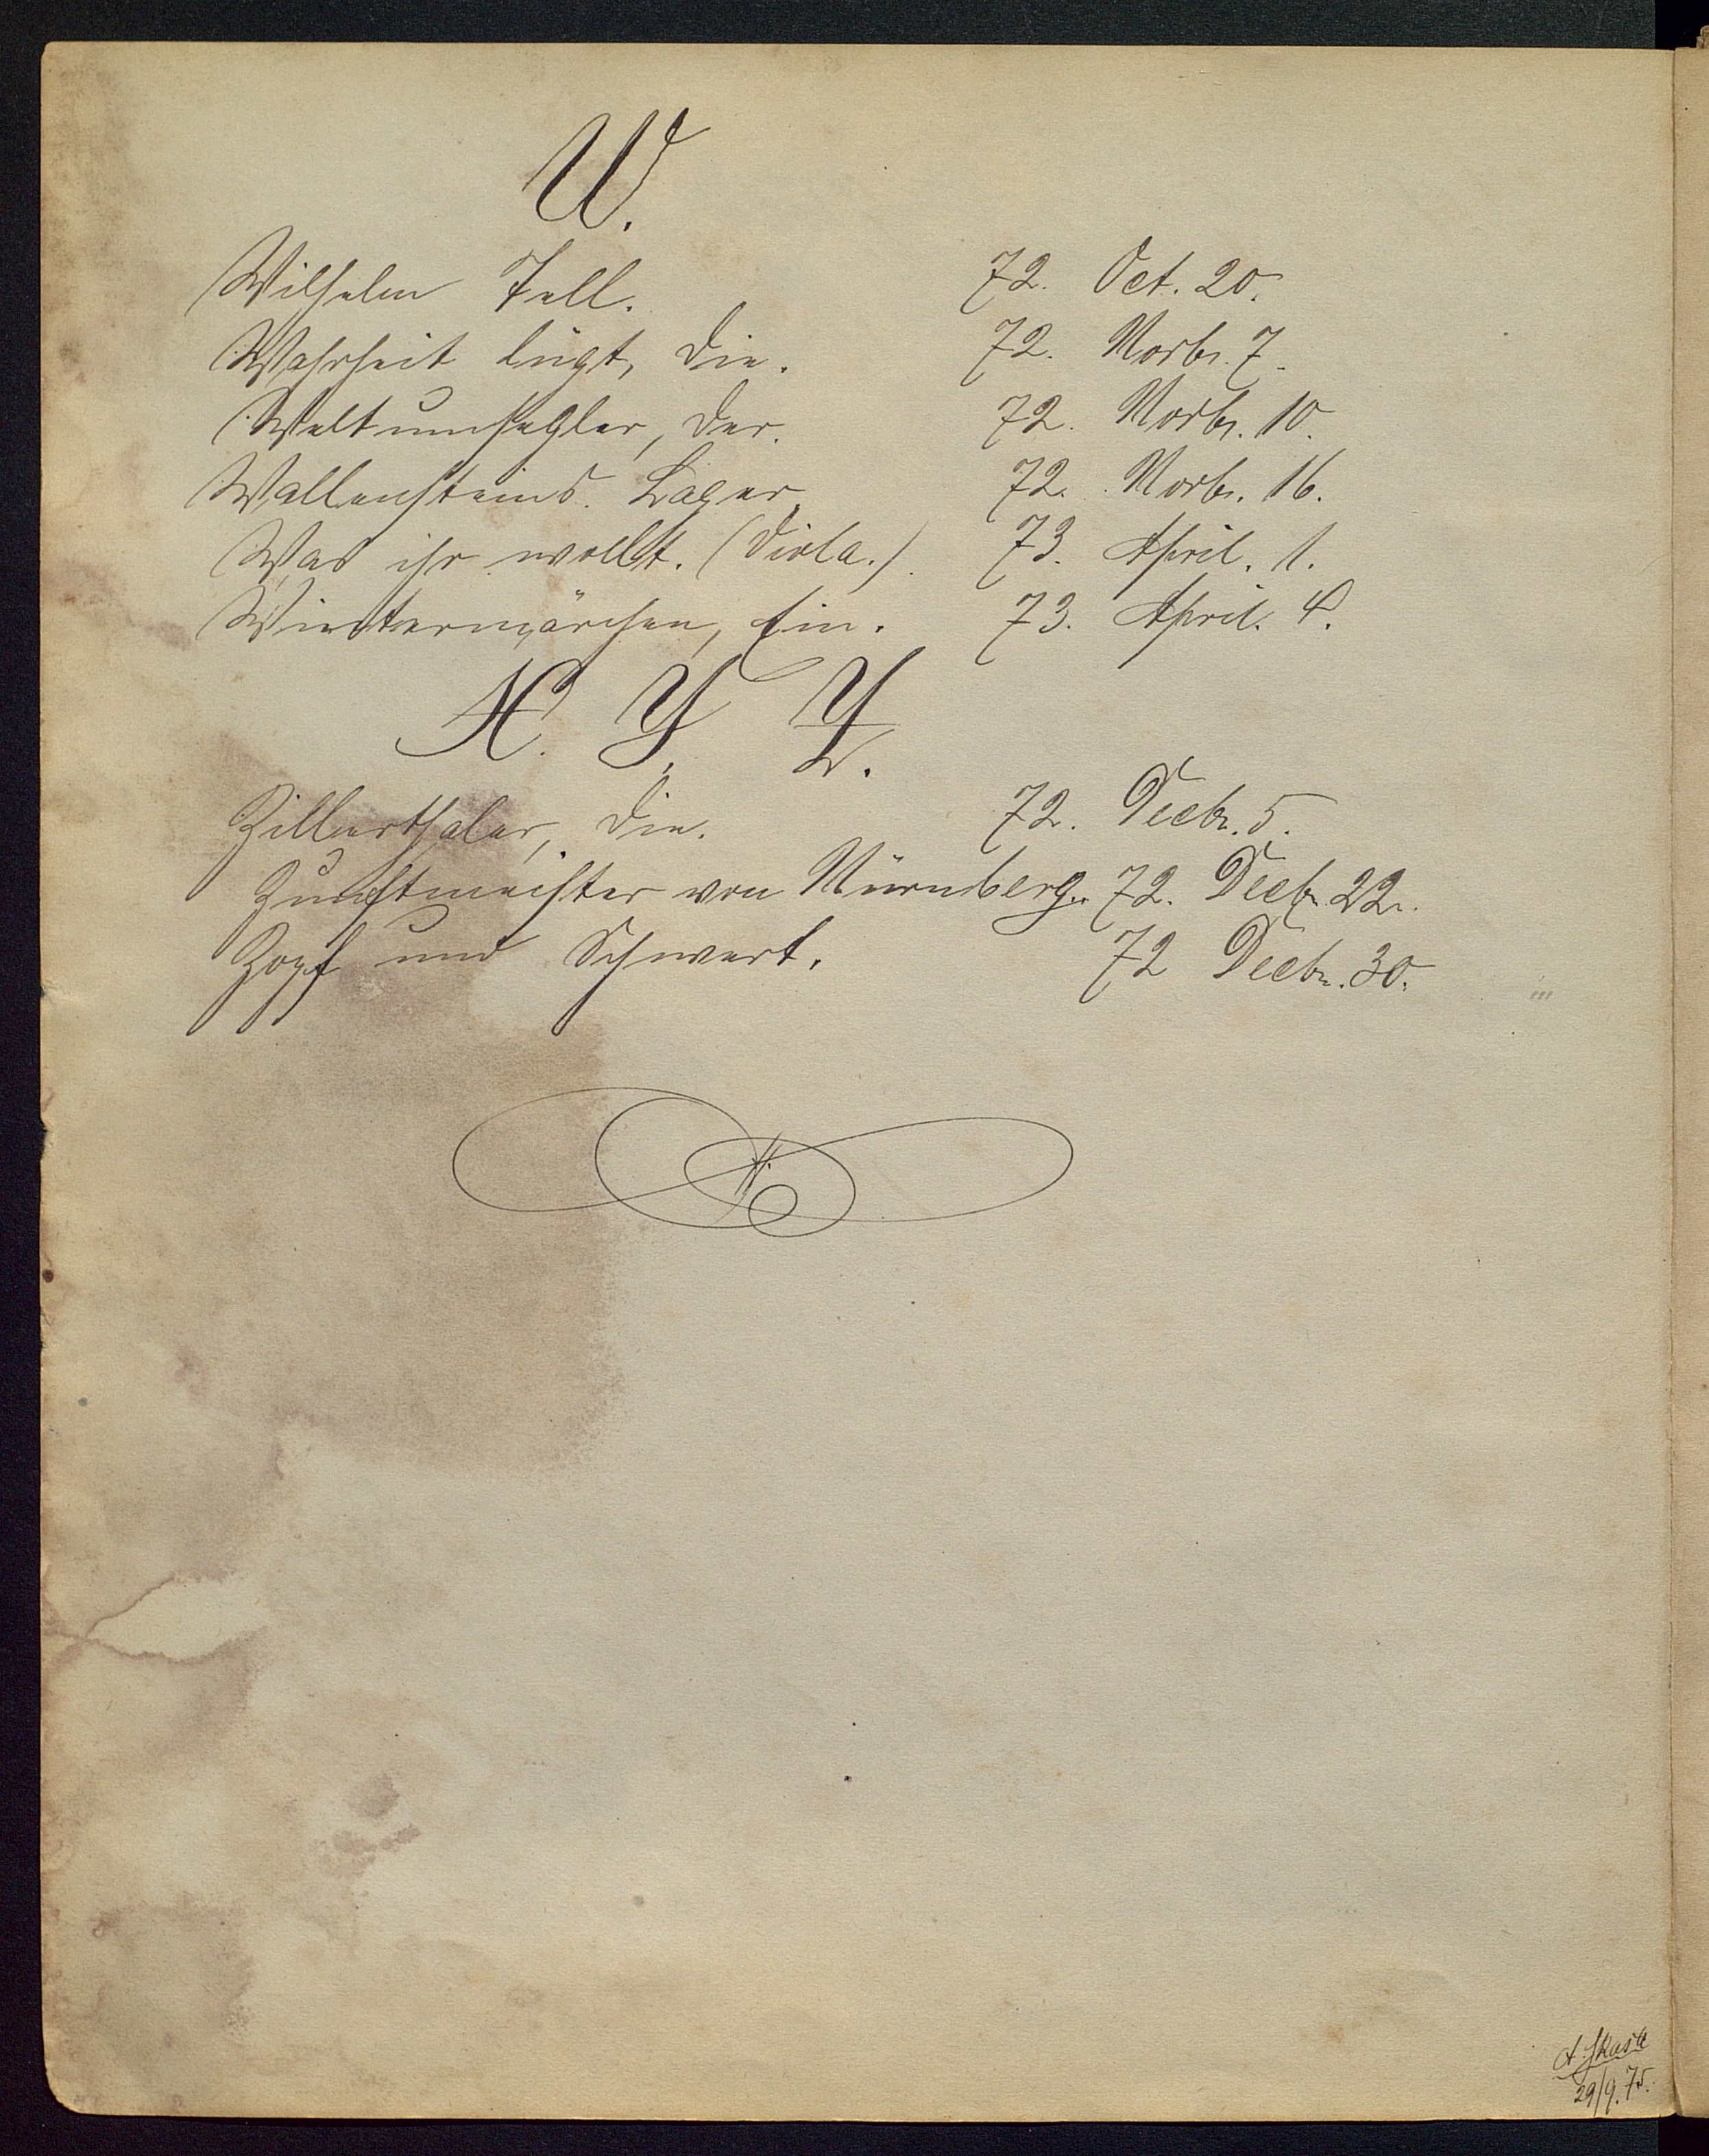 W.
Wilhelm Tell. 72. Oct. 20.
Wahrheit lügt, die. 72. Novbr. 7.
Weltumsegler, der. 72. Novbr. 10.
Wallensteins Lager. 72. Novbr. 16.
Was ihr wollt. (Viola.) 73. April. 1.
Wintermärchen, Ein. 73. April.
X. Y. Z.
Zillerthaler, die. 72. Decbr. 5.
Zunftmeister von Nürnberg. 72. Decbr. 22.
Zopf und Schwert. 72 Decbr. 30.
29/9. 75.